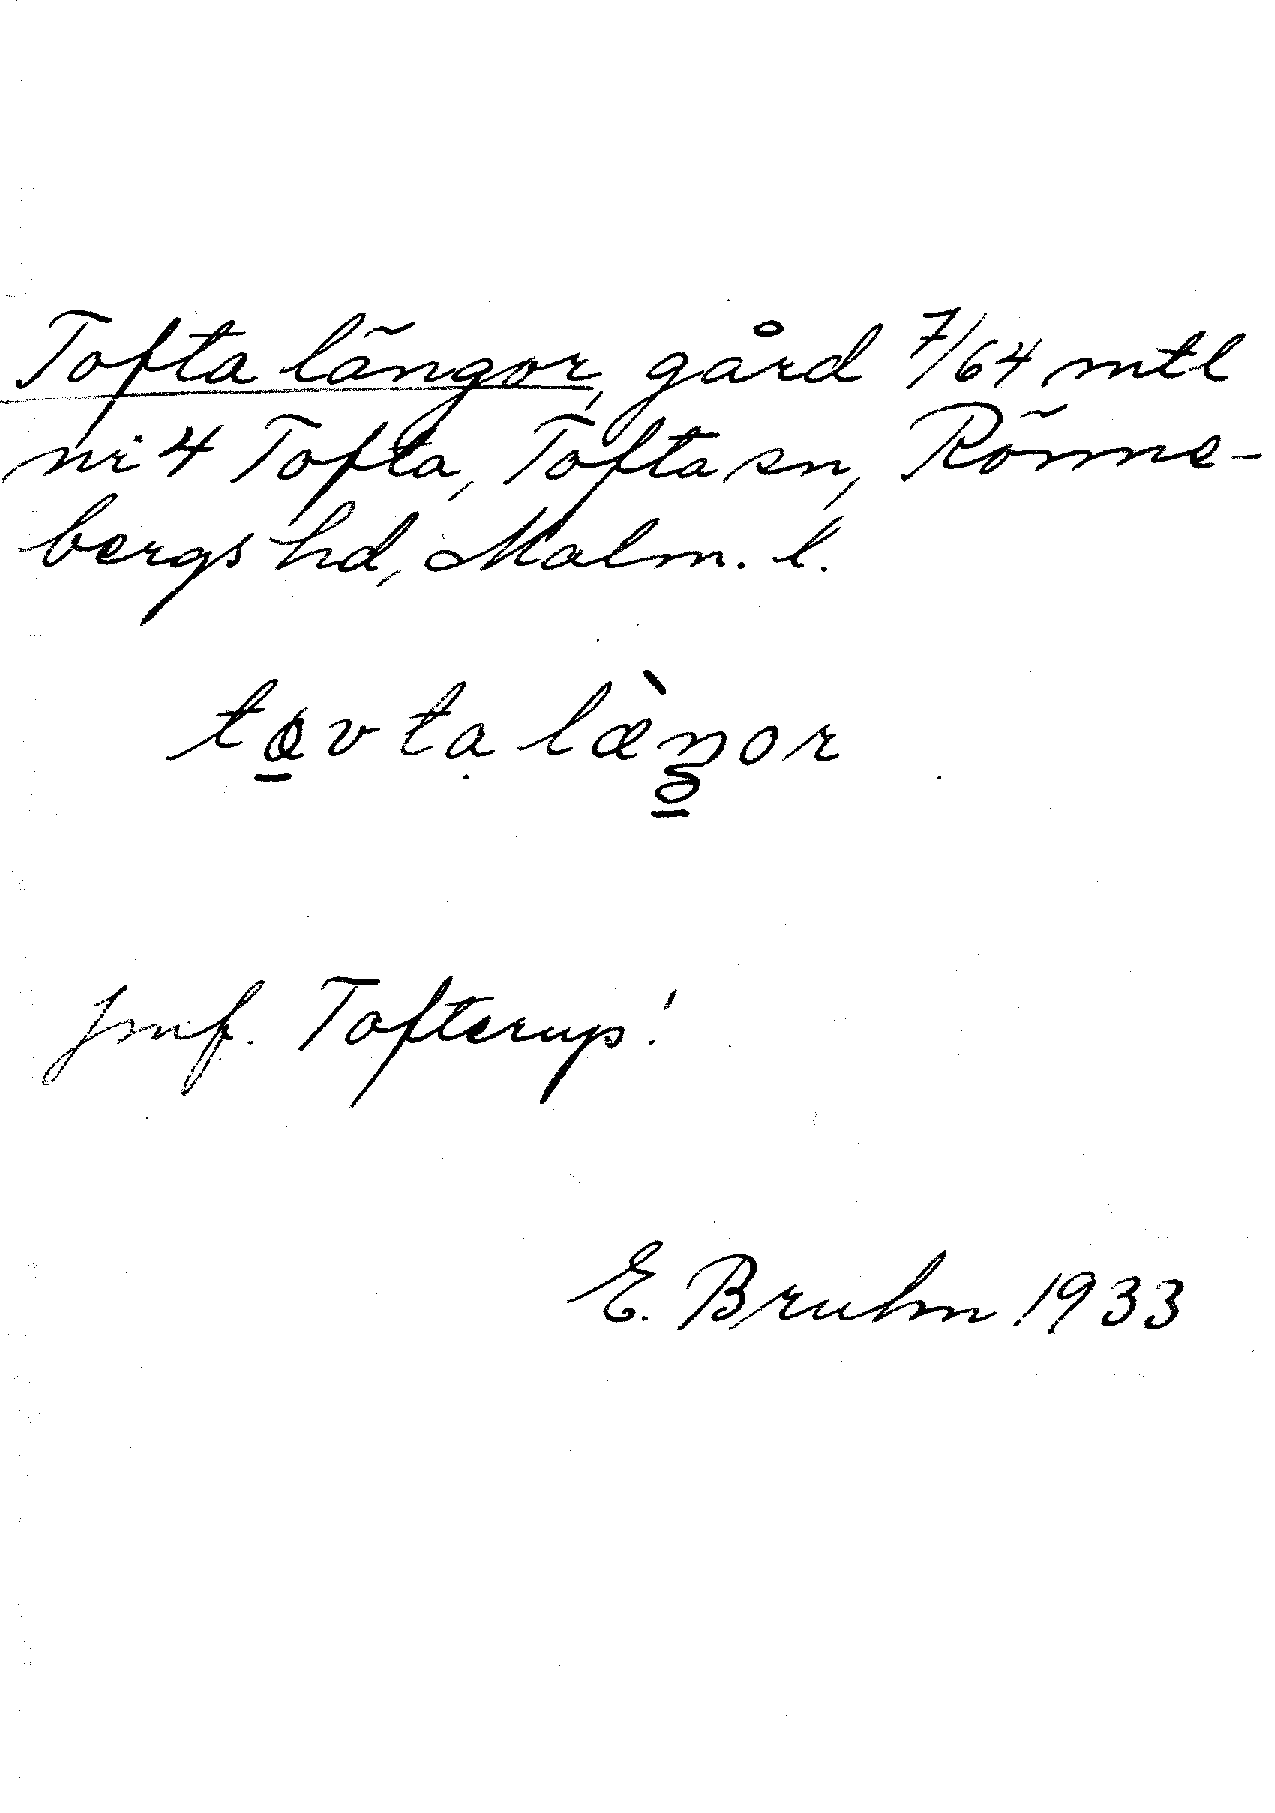 Tofta längor, gård 7/64 mtl
nr 4 Tofta, Tofta sn, Rönne-
bergs hd, Malm. l.
tåvta læ̀ŋor
Jmf. Tofterup!
E. Bruhn 1933